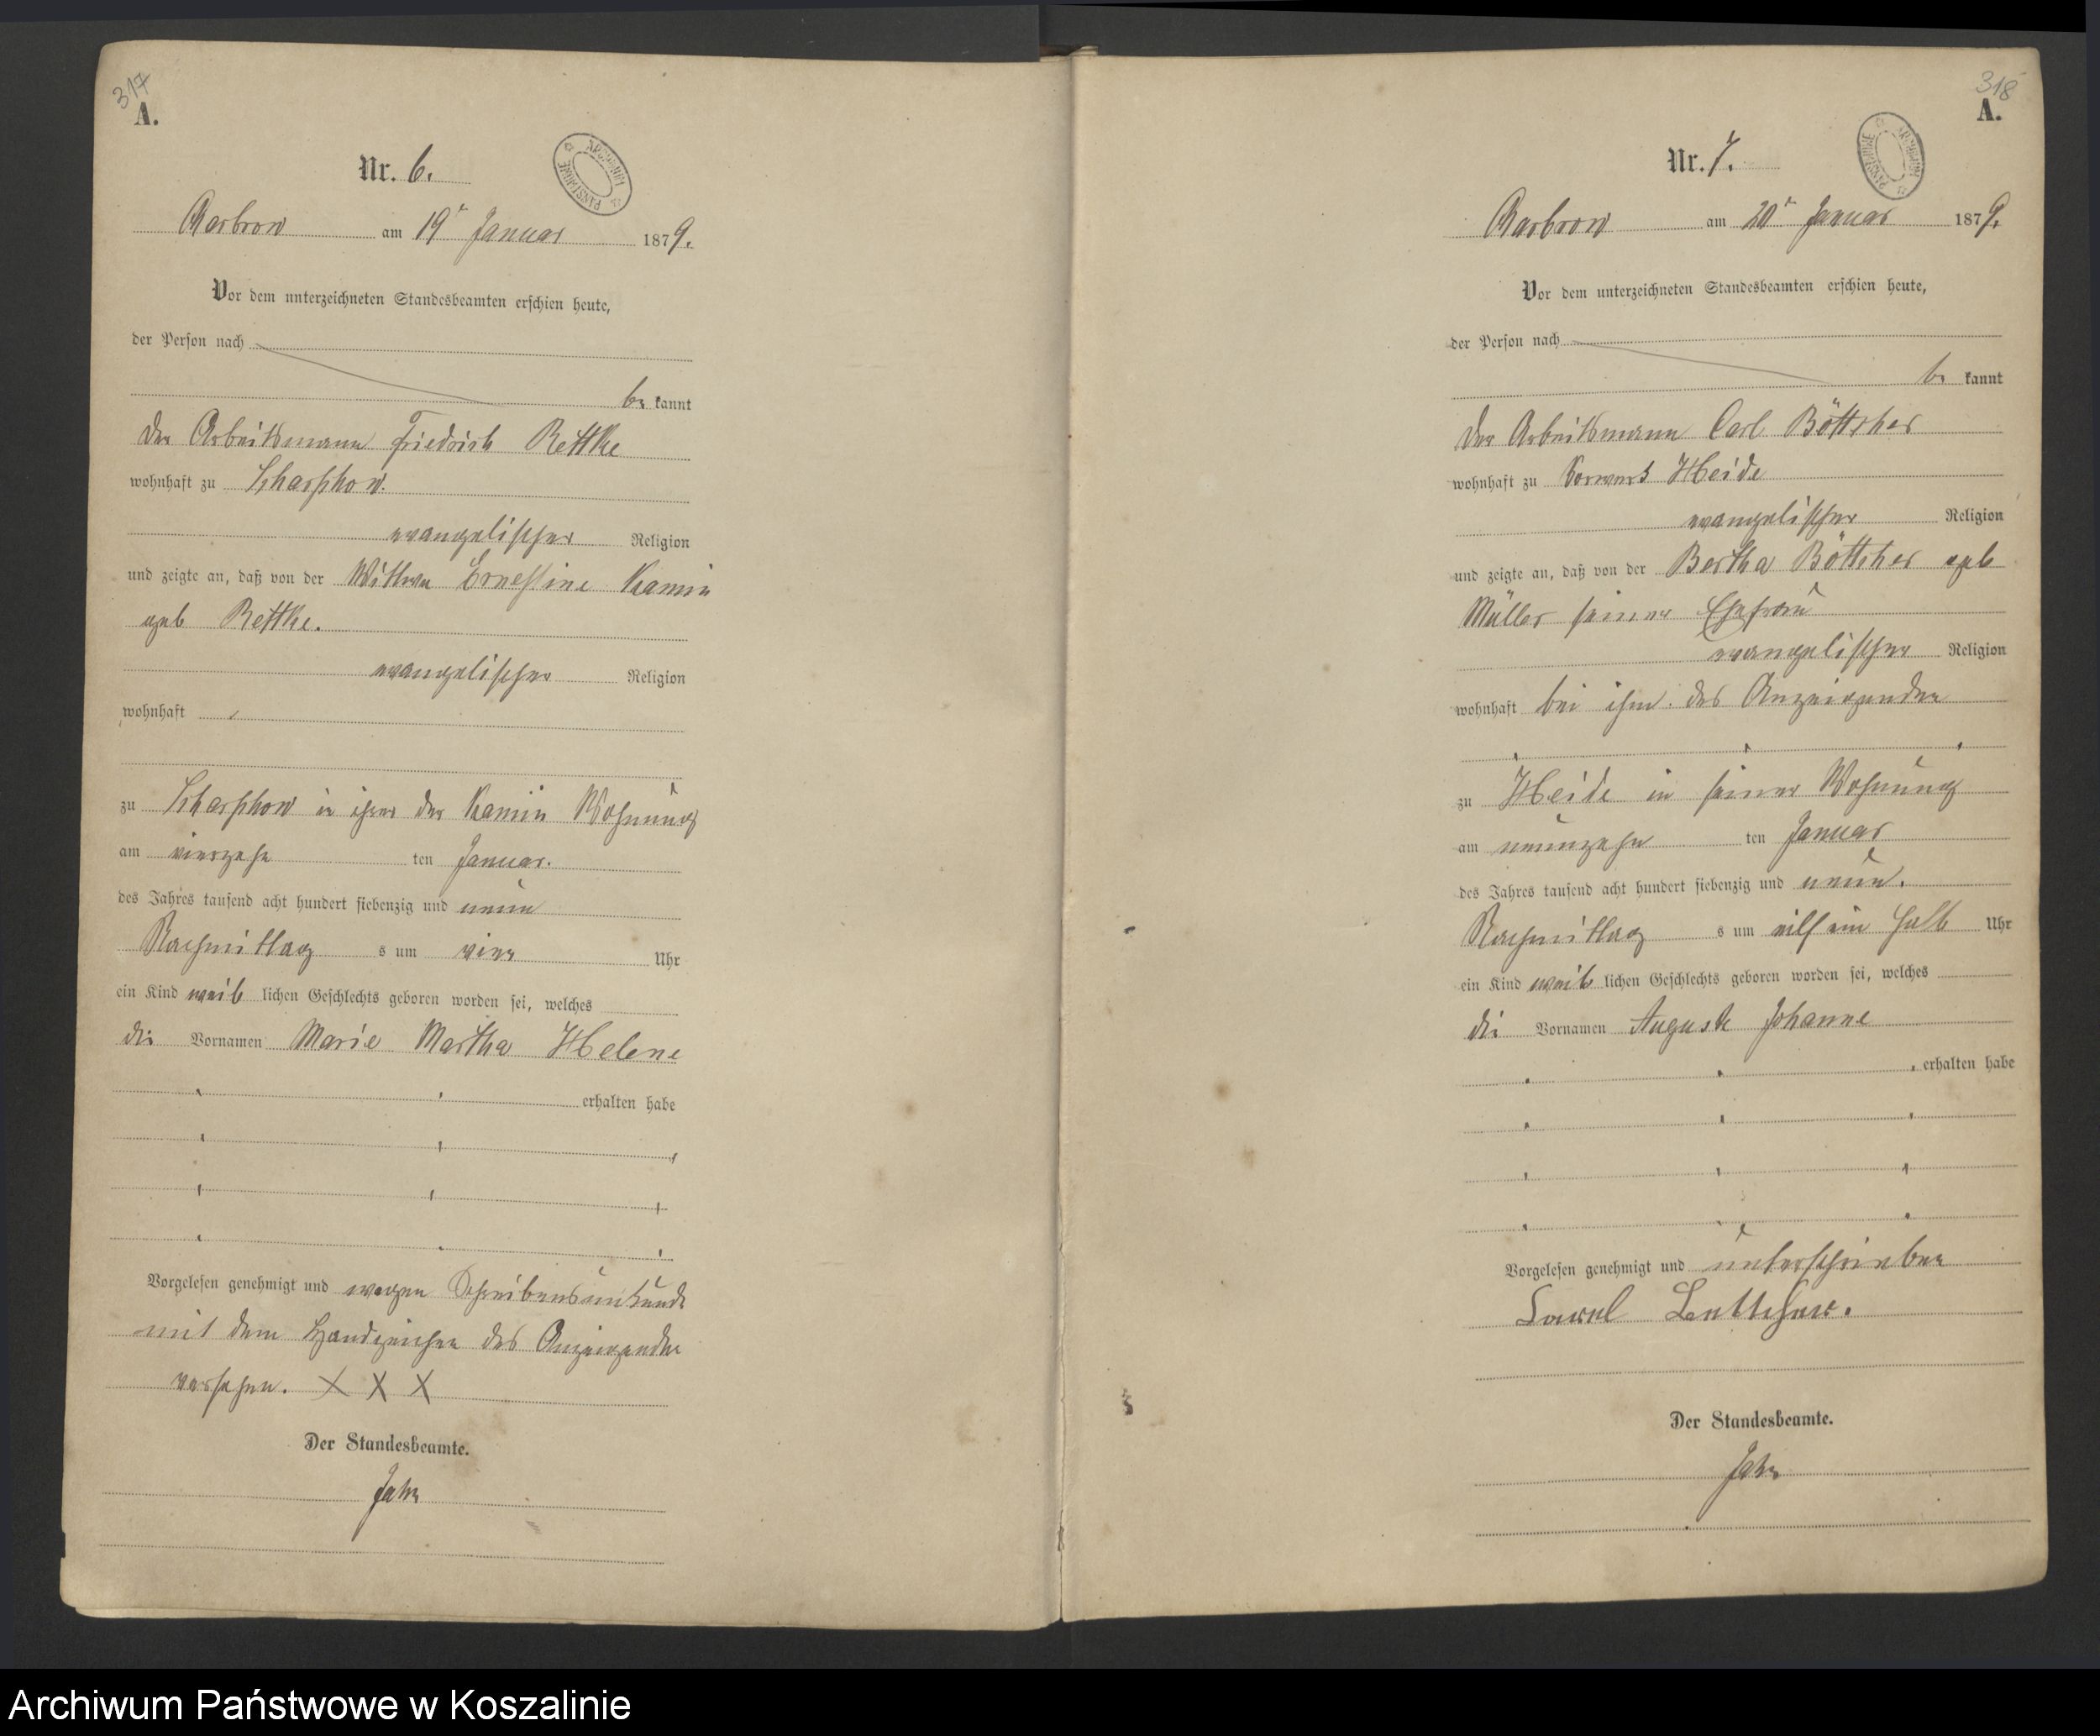 317
A.
Nr. 6.
ARCHIWUM PAŃSTWOWE
Rarbrow am 19t Januar 1879.
Vor dem unterzeichneten Standesbeamten erschien heute,
der Person nach
be kannt
der Arbeitsmann Friedrich Rettke
wohnhaft zu Scharpkow.
evangelischer Religion
und zeigte an, daß von der Wittwe Ernestine Kamin
geb Rettke.
evangelischer Religion
wohnhaft
zu Scharpkow in ihrer der Kamin Wohnung
am vierzehn ten Januar.
des Jahres tausend acht hundert siebenzig und neun
Nachmittag s um vier Uhr
ein Kind weib lichen Geschlechts geboren worden sei, welches
die Vornamen Marie Martha Helene
erhalten habe
Vorgelesen genehmigt und wegen Schreibensunkunde
mit dem Handzeichen des Anzeigenden
versehen. X X X
Der Standesbeamte.
318
A.
Nr. 7.
ARCHIWUM PAŃSTWOWE
Rarbrow am 20t Januar 1879.
Vor dem unterzeichneten Standesbeamten erschien heute,
der Person nach
be kannt
der Arbeitsmann Carl Böttcher
wohnhaft zu Vorwerk Heide
evangelischer Religion
und zeigte an, daß von der Bertha Böttcher geb
Müller seiner Ehefrau
evangelischer Religion
wohnhaft bei ihm des Anzeigenden
zu Heide in seiner Wohnung
am neunzehn ten Januar
des Jahres tausend acht hundert siebenzig und neun.
Nachmittag s um eilf ein halb Uhr
ein Kind weib lichen Geschlechts geboren worden sei, welches
die Vornamen Auguste Johanne
erhalten habe
Vorgelesen genehmigt und unterschrieben
Der Standesbeamte.
Archiwum Państwowe w Koszalinie